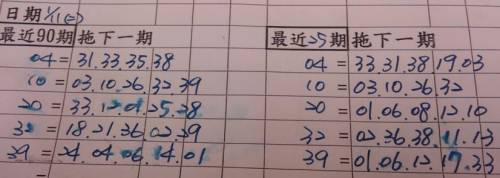 日期 1/11(二)
最近90期 拖下一期 最近25期 拖下一期
04 = 31.33.35.38 04 = 33.31.38.19.03
10 = 03.10.26.32.39 10 = 03.10.26.32
20 = 33.12.01.25.28 20 = 01.06.08.12.10
32 = 18.21.36.02.39 32 = 02.36.38.11.13
39 = 24.04.06.14.01 39 = 01.06.12.17.33